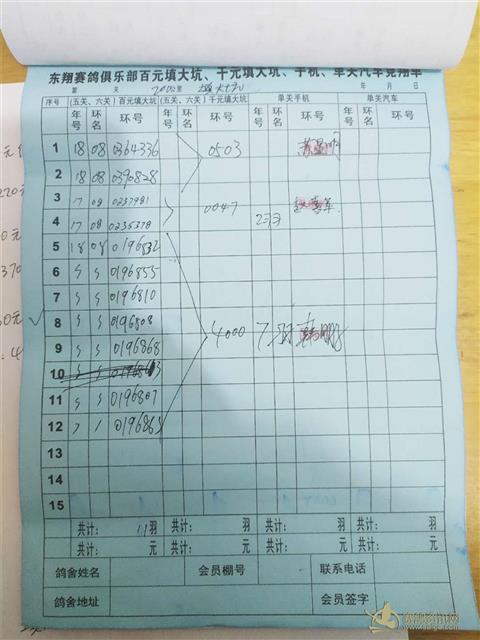 东翔赛鸽俱乐部百元填大坑、千元填大坑、手机、单关汽车竞翔单
第 关 200公里 填大坑 年 月 日
序号 (五关、六关)百元填大坑 (五关、六关)千元填大坑 单关手机 单关汽车
年号 环名 环号 年号 环名 环号 年号 环名 环号 年号 环名 环号
1 18 08 0364336 0503
2 18 08 0390828
3 17 08 0237981 0047
4 17 08 0235378 2羽
5 18 08 0196832
6 0196855
7 0196810
8 0196808 4000 7羽
9 0196868
10
11 0196807
12 019686
13
14
15
共计: 11羽 共计: 羽 共计: 羽 共计: 羽
共计: 元 共计: 元 共计: 元 共计: 元
鸽舍姓名 会员棚号 联系电话
鸽舍地址 会员签字